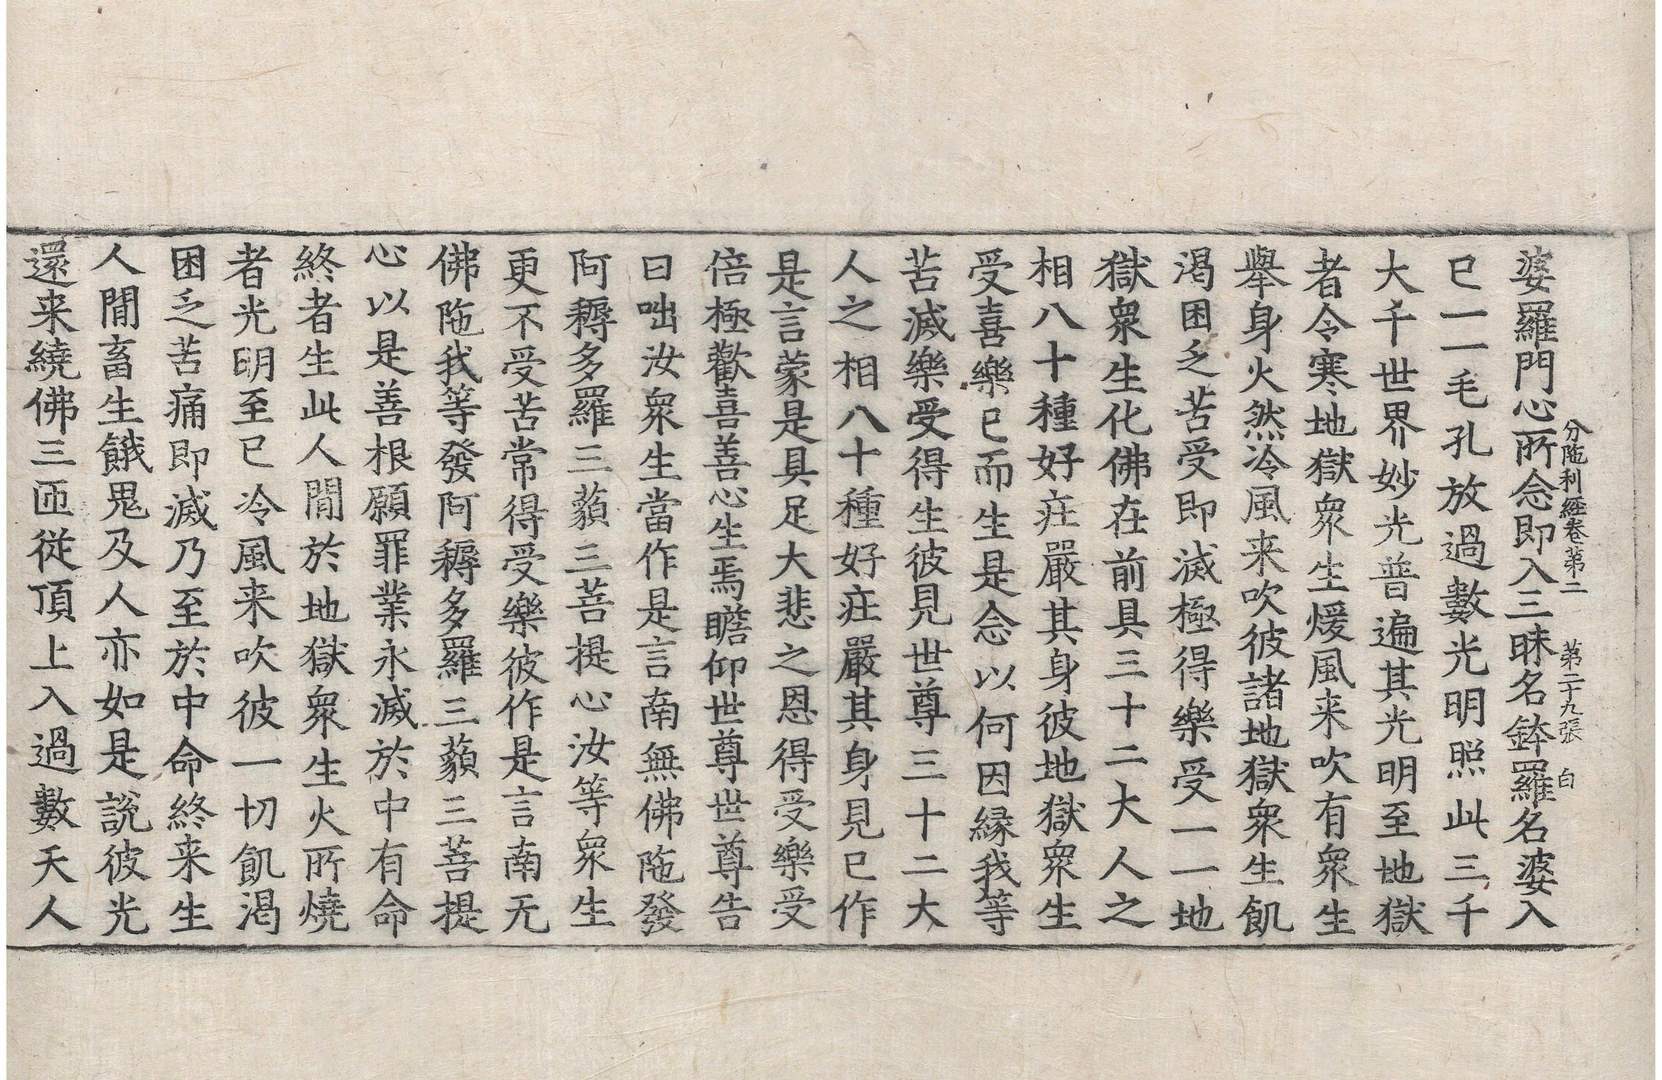 分陁利經卷第二　第二十九張　白
婆羅門心所念即入三昧名鉢羅名婆入
已一一毛孔放過數光明照此三千
大千世界妙光普遍其光明至地獄
者令寒地獄衆生煖風来吹有衆生
舉身火然冷風来吹彼諸地獄衆生飢
渴困乏苦受即滅極得樂受一一地
獄衆生化佛在前具三十二大人之
相八十種好㽵嚴其身彼地獄衆生
受喜樂已而生是念以何因縁我等
苦滅樂受得生彼見世尊三十二大
人之相八十種好㽵嚴其身見已作
是言蒙是具足大悲之恩得受樂受
倍極歡喜善心生焉瞻仰世尊世尊告
曰咄汝衆生當作是言南無佛陁發
阿耨多羅三藐三菩提心汝等衆生
更不受苦常得受樂彼作是言南无
佛陁我等發阿耨多羅三藐三菩提
心以是善根願罪業永滅於中有命
終者生此人間於地獄衆生火所燒
者光明至已冷風来吹彼一切飢渴
困乏苦痛即滅乃至於中命終来生
人間畜生餓鬼及人亦如是說彼光
還来繞佛三匝從頂上入過數天人